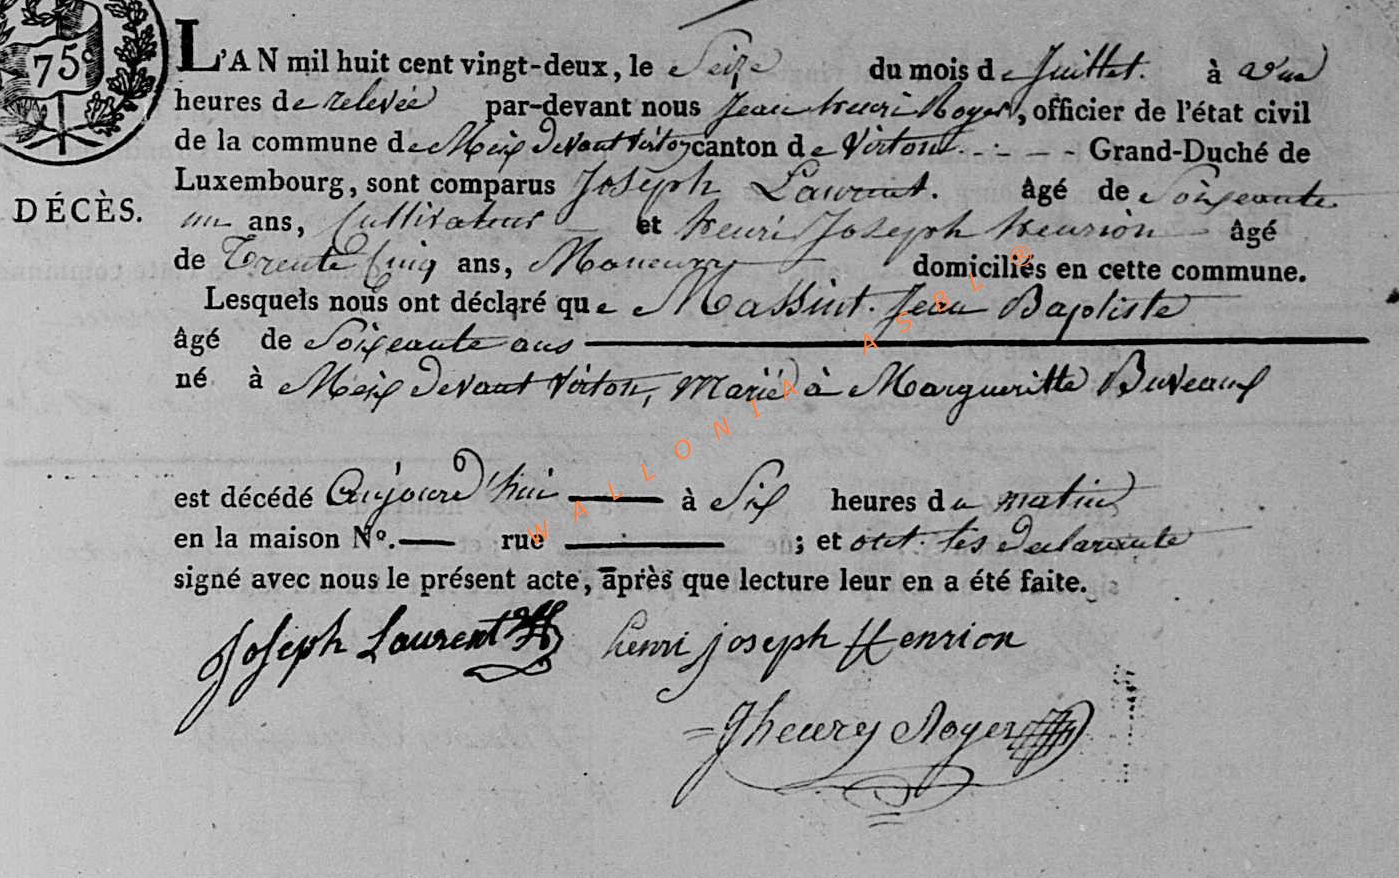 75c
L'AN mil huit cent vingt-deux, le Seize du mois de Juillet. à une
heures de relevée par-devant nous Jean henri Royer, officier de l'état civil
de la commune de Meix devant virton canton de Virton - - - Grand-Duché de
Luxembourg, sont comparus Joseph Laurent. âgé de Soixante
DÉCÈS.
un ans, Cultivateur et henri Joseph henrion âgé
de Trente Cinq ans, domiciliés en cette commune.
Lesquels nous ont déclaré que Massint Jean Baptiste
âgé de Soixante ans
né à Meix devant Virton, Marié à Margueritte Buveaux
est décédé Aujourd'hui à Six heures du matin
en la maison N°. rue ; et ont les declarants
signé avec nous le présent acte, après que lecture leur en a été faite.
Joseph Laurent henri joseph Henrion
Jhenry Royer
WALLONIA ASBL ®